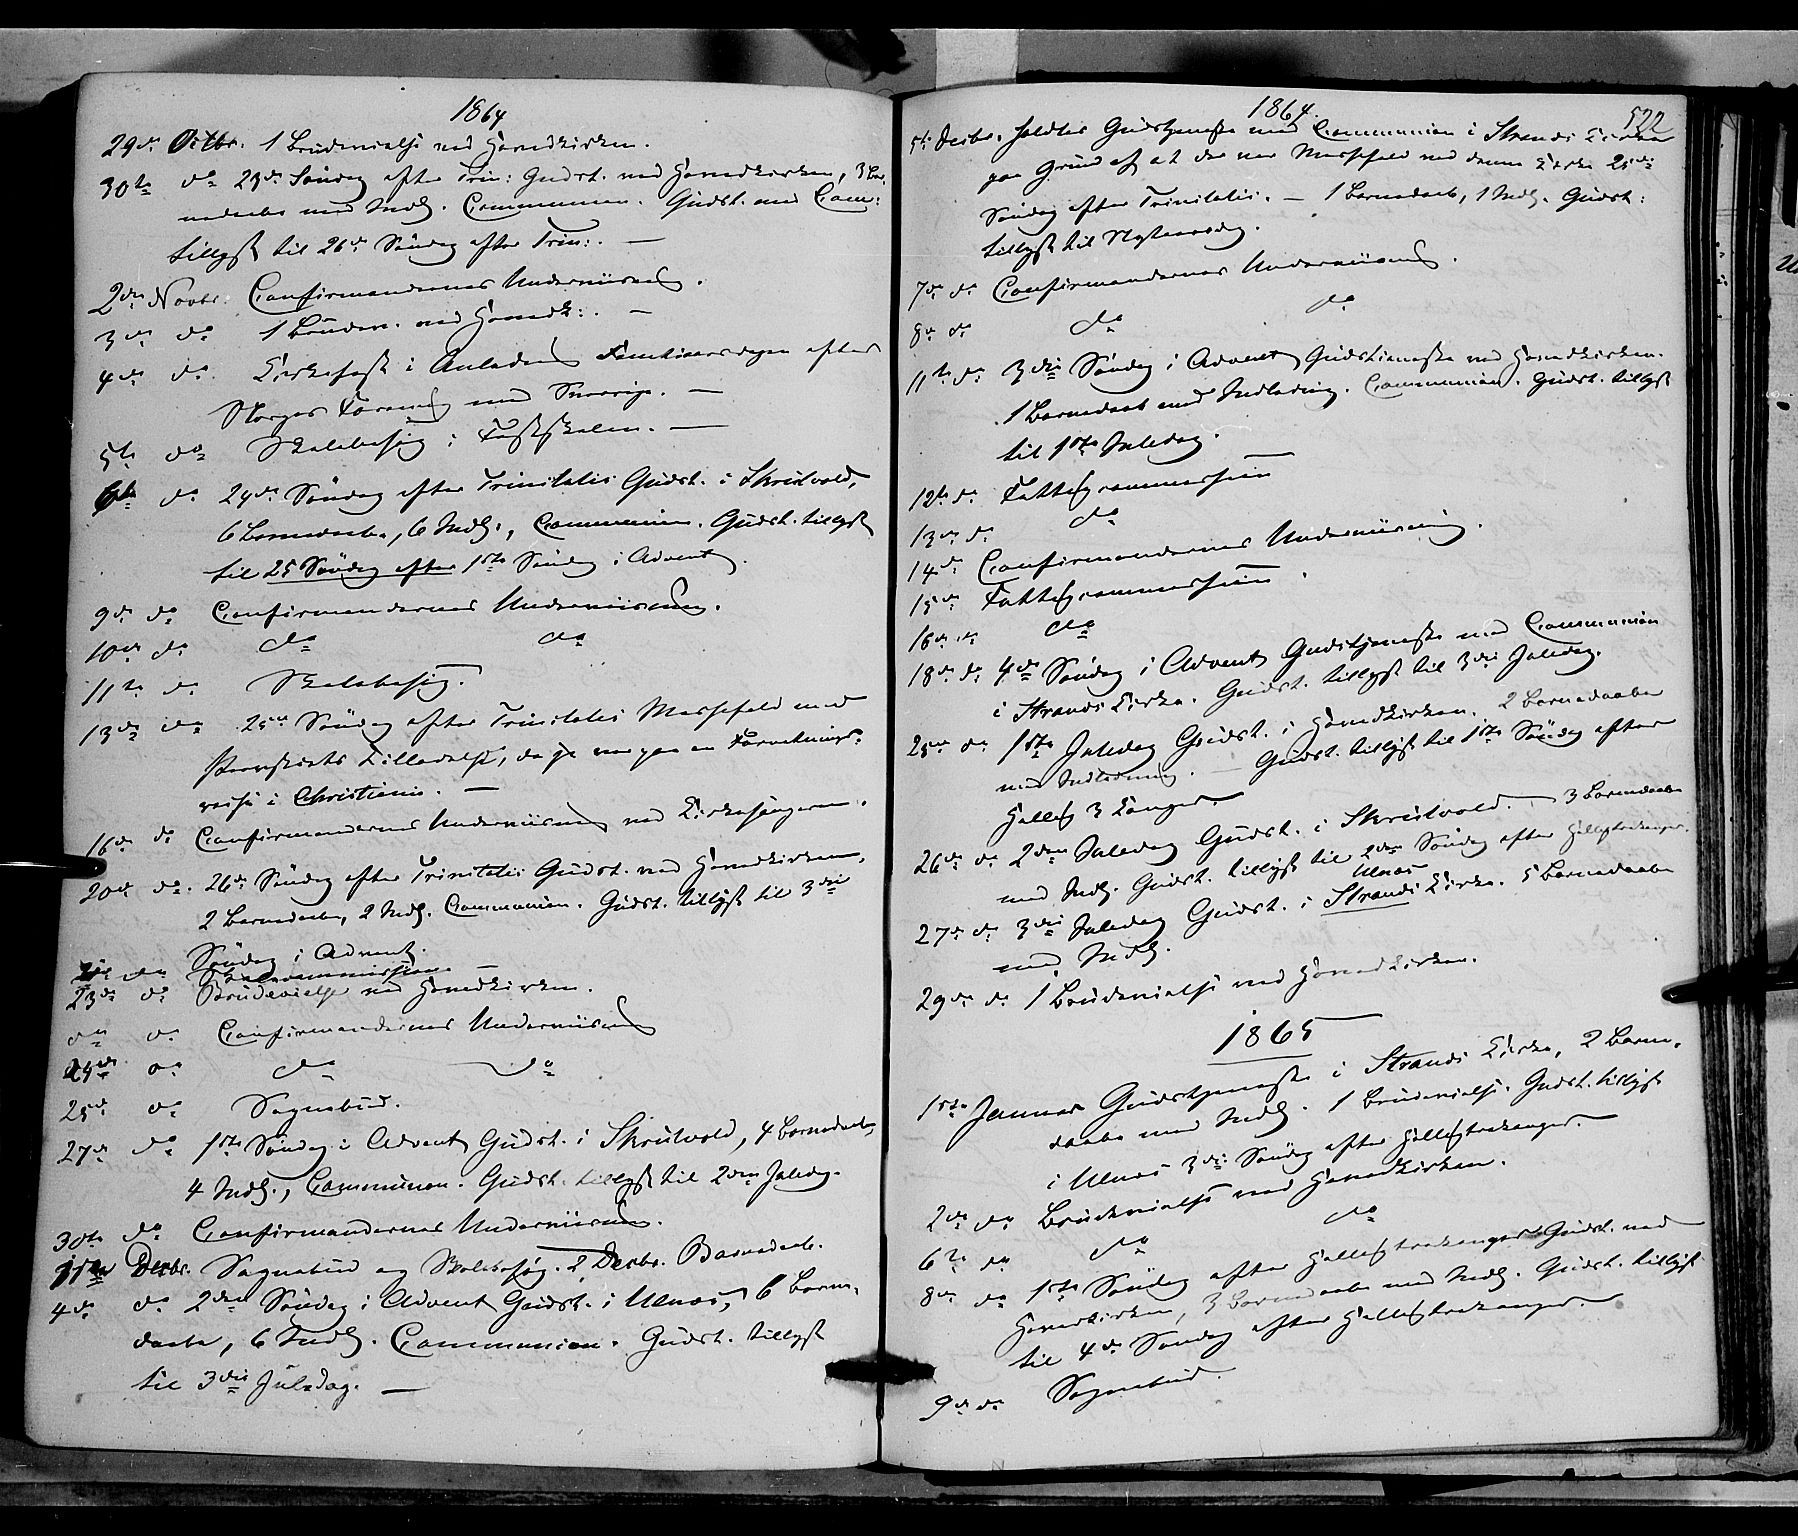 1864
29de Octbr. 1 Brudevielse ved Hovedkirken.
30te do 23de Søndag efter Trin: Gudst. ved Hovedkirken, 3 Bar-
nedaabe med Indl. Communion. Gudst. med Com:
tillyst til 26de Søndag efter Trin:. —
2den Novbr. Confirmandernes Underviisning.
3de do 1 Brudev. ved Hovedk:. —
4de do Kirkefest i Anledning Femtiaarsdagen efter
Norges Forening med Sverrig. —
5te do Skolebesøg i Fastskolen. —
6te do 24de Søndag efter Trinitatis Gudst. i Skrutvold,
6 Barnedaabe, 6 Indl., Communion. Gudst. tillyst
til 25 Søndag efter 1ste Søndag i Advent.
9de do Confirmandernes Underviisning.
10de do do do
11te do Skolebesøg.
13de do 25de Søndag efter Trinitatis Messefald med
Provstiets Tilladelse, da jeg var paa en Forretnings-
reise i Christiania. —
16de do Confirmandernes Underviisning ved Kirkesangeren.
20de do. 26de Søndag efter Trinitatis Gudst. ved Hovedkirken,
2 Barnedaabe, 2 Indl. Communion. Gudst. tillyst til 3die
Søndag i Advent.
do Skolecommission —
23de do Brudevielse ved Hovedkirken.
do do Confirmandernes Underviisning
24de do do do
25de do Sognebud.
27de do 1ste Søndag i Advent Gudst. i Skrutvold, 4 Barnedaabe,
4 Indl., Communion. Gudst. tillyst til 2den Juledag.
30te do Confirmandernes Underviisning.
1ste Decbr. Sognebud og Skolebesøg. 2 Decbr. Barnedaab.
4de do 2den Søndag i Advent Gudst. i Ulnæs, 6 Barne-
daabe, 6 Indl. Communion. Gudst. tillyst
til 3die Juledag. —
1864.
522
5te Decbr. holdtes Gudstjeneste med Communion i Strands Kirke
paa Grund af at der var Messefald ved denne Kirke 25de
Søndag efter Trinitatis. — 1 Barnedaab, 1 Indl. Gudst:
tillyst til Nytaarsdag.
7de do Confirmandernes Underviisning.
8de do do do
11te do 3die Søndag i Advent Gudstjeneste ved Hovedkirken.
1 Barnedaab med Indledning. Communion. Gudst. tillyst
til 1ste Juledag.
12te do Fattigcommission
13de do do
14de Confirmandernes Underviisning.
15de Fattigcommission.
16de do do
18de do 4de Søndag i Advent Gudstjeneste med Communion
i Strands Kirke. Gudst. tillyst til 3die Juledag.
25de do 1ste Juledag Gudst. i Hovedkirken. 2 Barnedaabe
med Indledning. — Gudst. tillyst til 1ste Søndag efter
Hellig 3 Konger.
26de do 2den Juledag Gudst. i Skrutvold. 3 Barnedaabe
med Indl. Gudst. tillyst til 2den Søndag efter Helligtrekonger.
Ulnæs
27de do 3die Juledag Gudst. i Strands Kirke. 5 Barnedaabe
med Indl.
29de do 1 Brudevielse ved Hovedkirken.
1865
1ste Januar Gudstjeneste i Strands Kirke, 2 Barne-
daabe med Indl. 1 Brudevielse. Gudst. tillyst
i Ulnæs 3die Søndag efter Helligtrekonger.
2de do Brudevielse ved Hovedkirken.
6te do do do
8de do 1ste Søndag efter Helligtrekonger Gudst. ved
Hovedkirken, 3 Barnedaabe med Indl. Gudst. tillyst
til 4de Søndag efter Helligtrekonger.
9de do Sognebud.